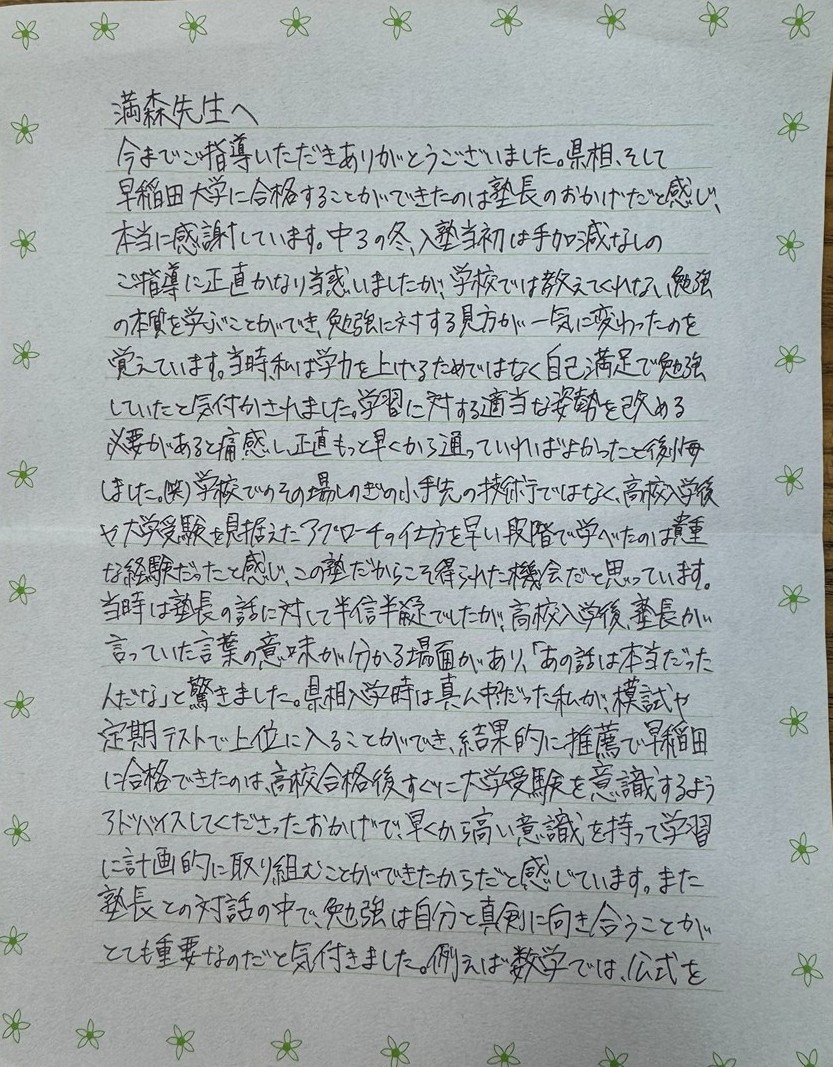 満森先生へ
今までご指導いただきありがとうございました。県相、そして
早稲田大学に合格することができたのは塾長のおかげだと感じ、
本当に感謝しています。中3の冬、入塾当初は手加減なしの
ご指導に正直かなり当惑いましたが、学校では教えてくれない勉強
の本質を学ぶことができ、勉強に対する見方が一気に変わったのを
覚えています。当時、私は学力を上げるためではなく自己満足で勉強
していたと気付かされました。学習に対する適当な姿勢を改める
必要があると痛感し、正直もっと早くから通っていればよかったと後悔
しました。(笑)学校でのその場しのぎの小手先の技術ではなく、高校入学後
や大学受験を見据えたアプローチの仕方を早い段階で学べたのは貴重
な経験だったと感じ、この塾だからこそ得られた機会だと思っています。
当時は塾長の話に対して半信半疑でしたが、高校入学後、塾長が
言っていた言葉の意味が分かる場面があり、「あの話は本当だった
んだな」と驚きました。県相入学時は真ん中だった私が、模試や
定期テストで上位に入ることができ、結果的に推薦で早稲田
に合格できたのは、高校合格後すぐに大学受験を意識するよう
アドバイスしてくださったおかげで、早くから高い意識を持って学習
に計画的に取り組むことができたからだと感じています。また
塾長との対話の中で、勉強は自分と真剣に向き合うことが
とても重要なのだと気付きました。例えば数学では、公式を